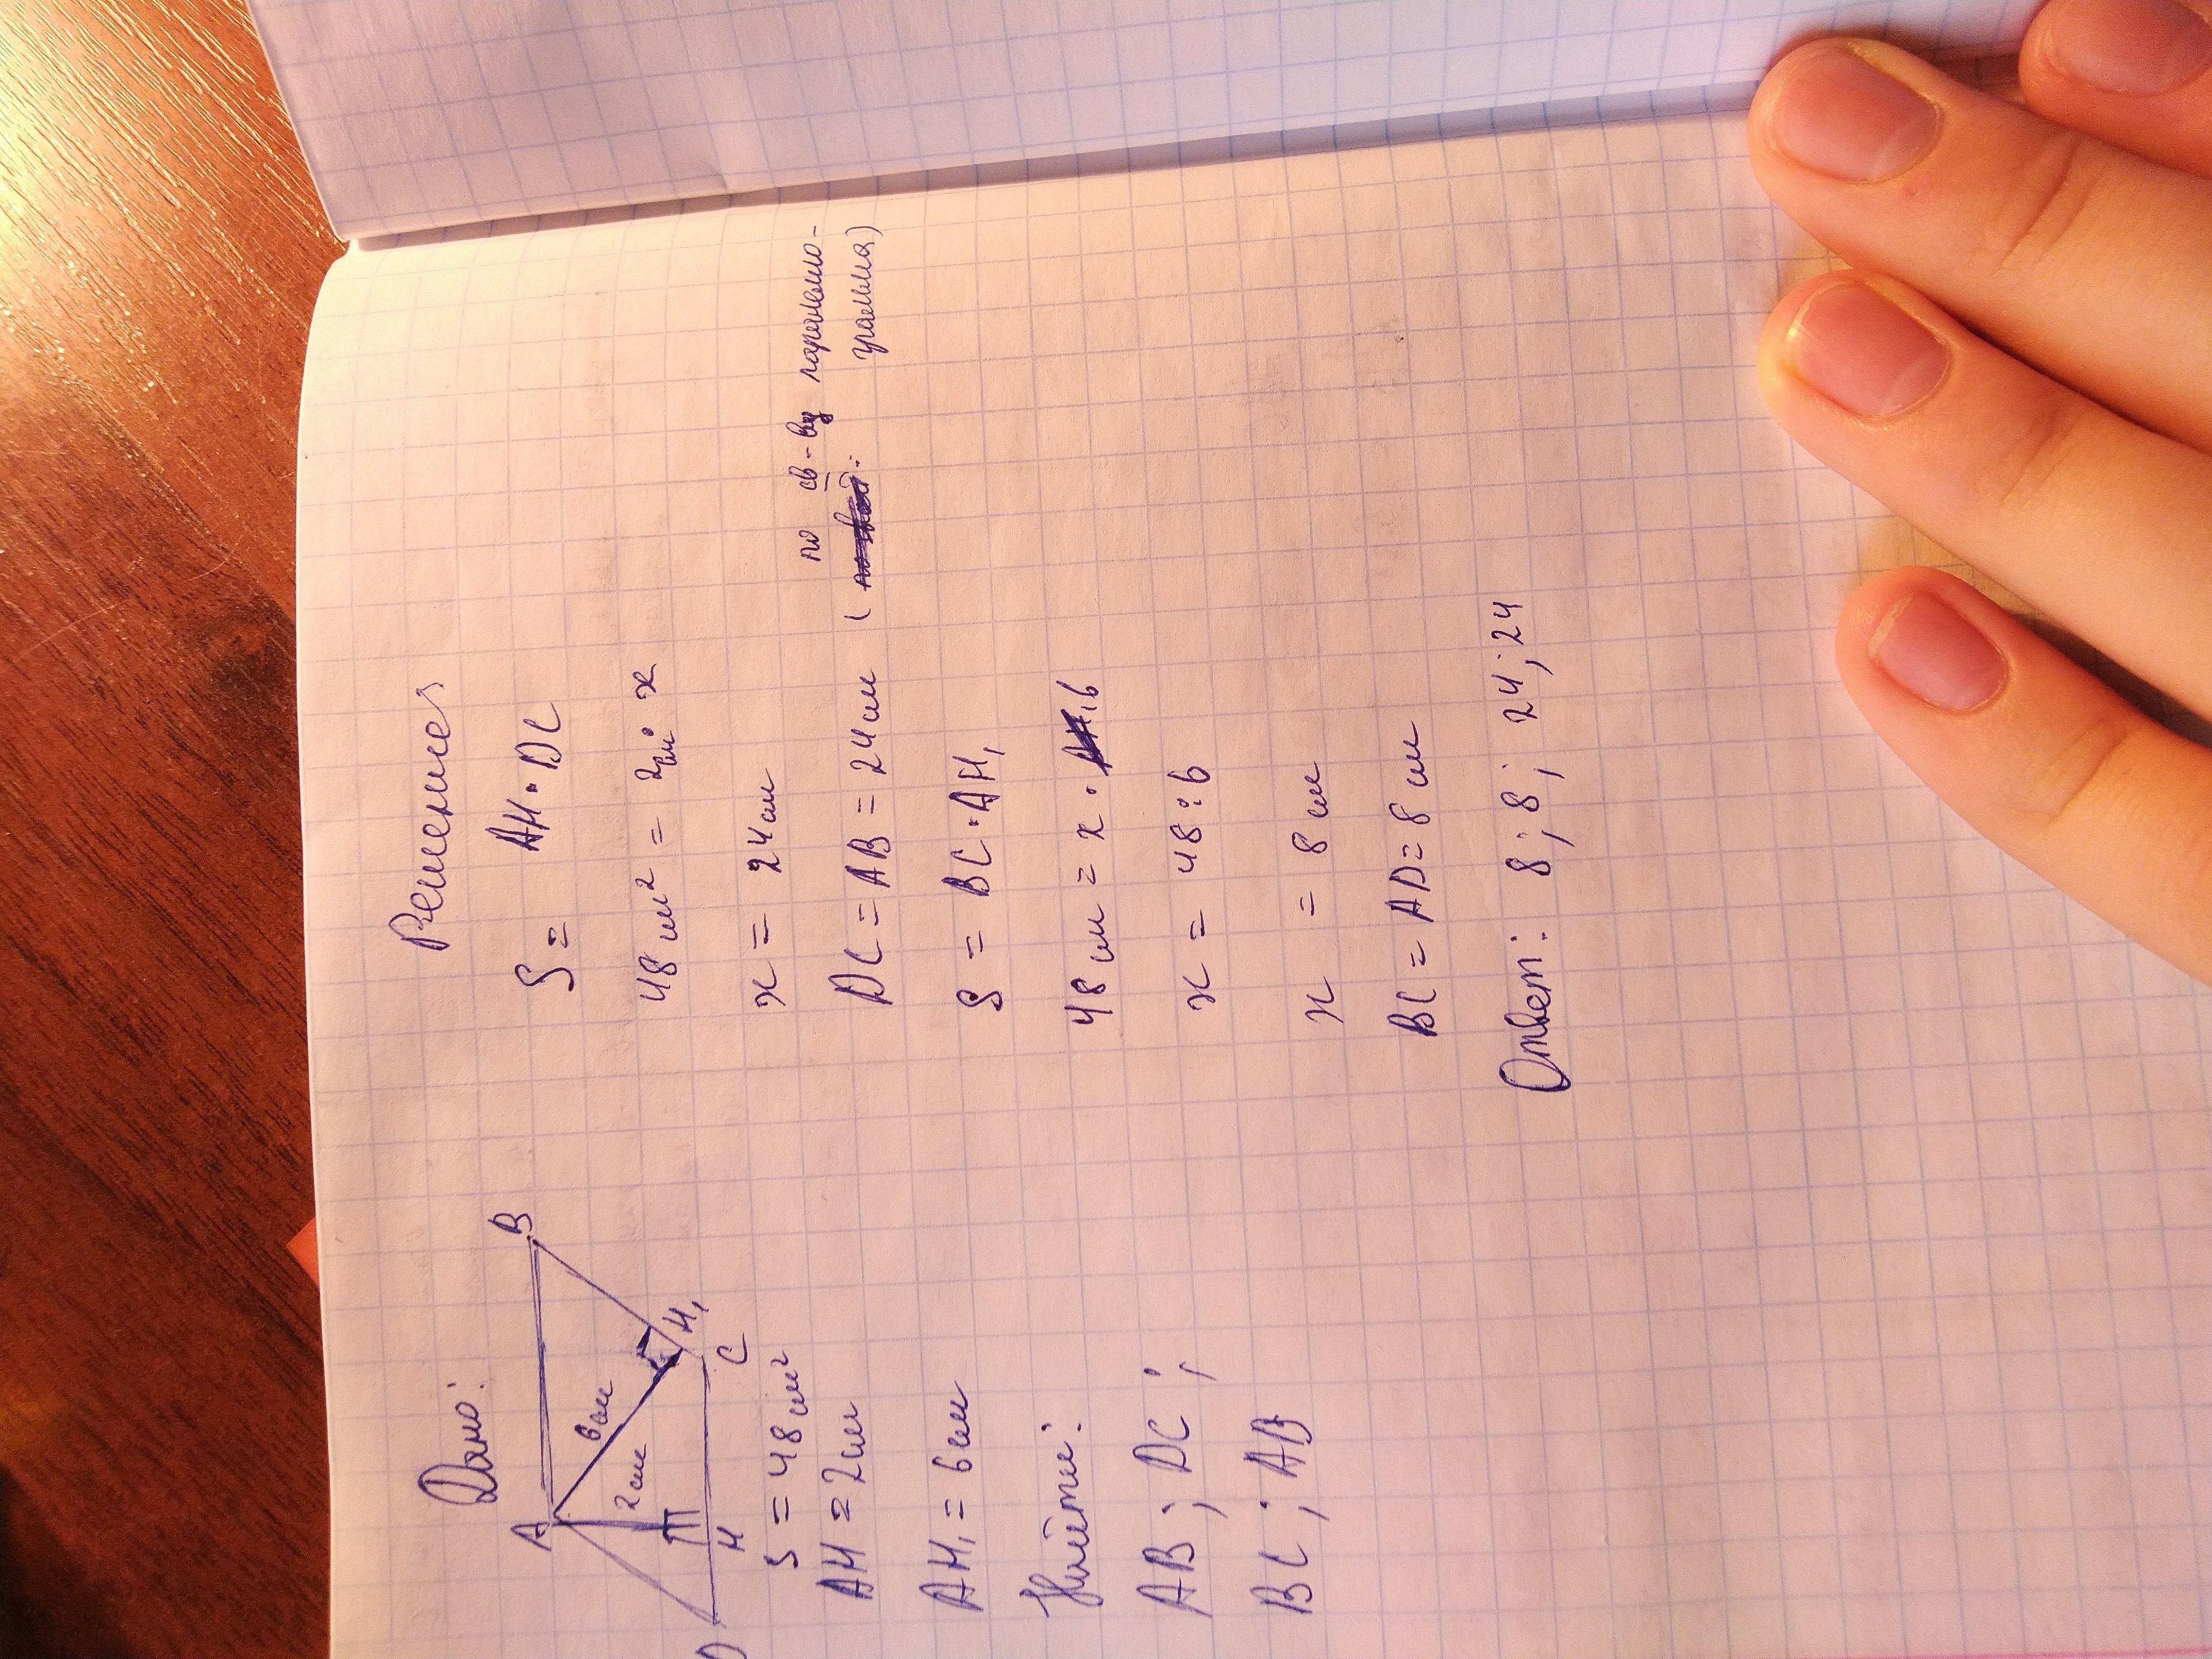 Дано:
A
B
6 см
2 см
H₁
D
H
C
S = 48 см²
AH = 2 см
AH₁ = 6 см
Найти:
AB; DC;
BC; AD
Решение
S = AH · DC
48 см² = 2 см · x
x = 24 см
DC = AB = 24 см (по св-ву параллело-
грамма)
S = BC · AH₁
48 см = x · 6
x = 48 : 6
x = 8 см
BC = AD = 8 см
Ответ: 8; 8; 24; 24